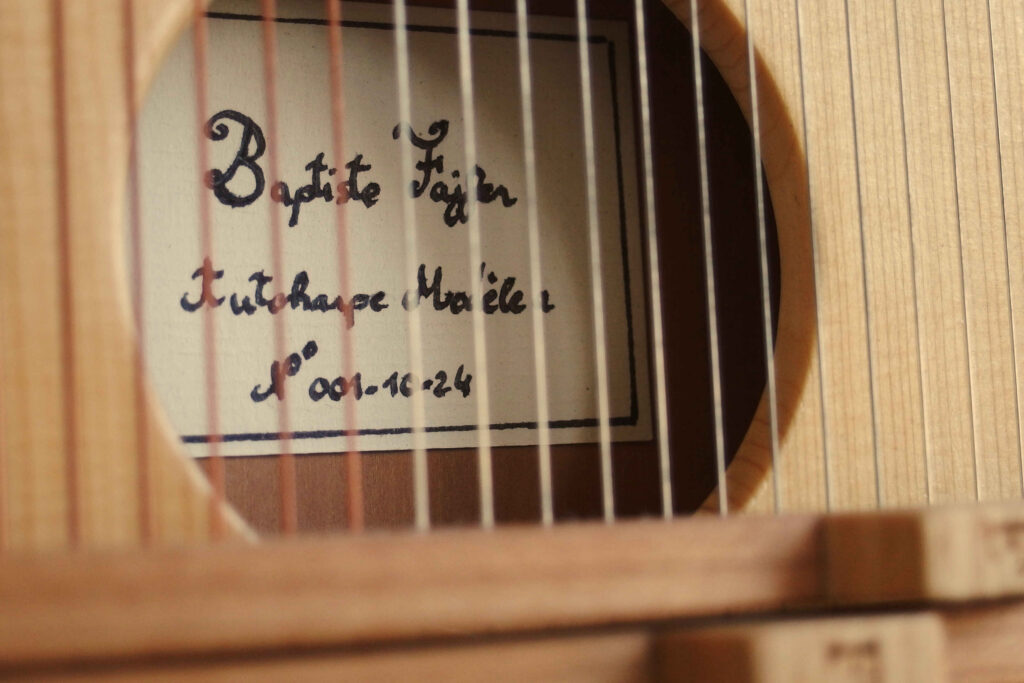 Baptiste Fajfer
Autoharpe Modèle 1
N° 001-10-24